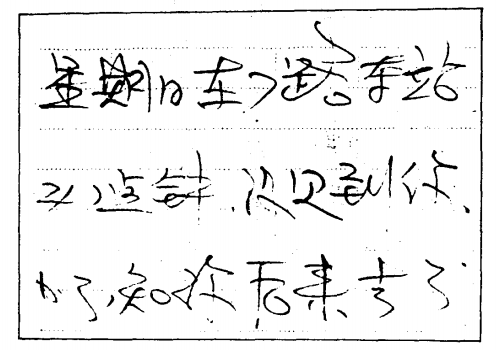 星期日在7路车站
点钟,没见到你,
知你后来去了